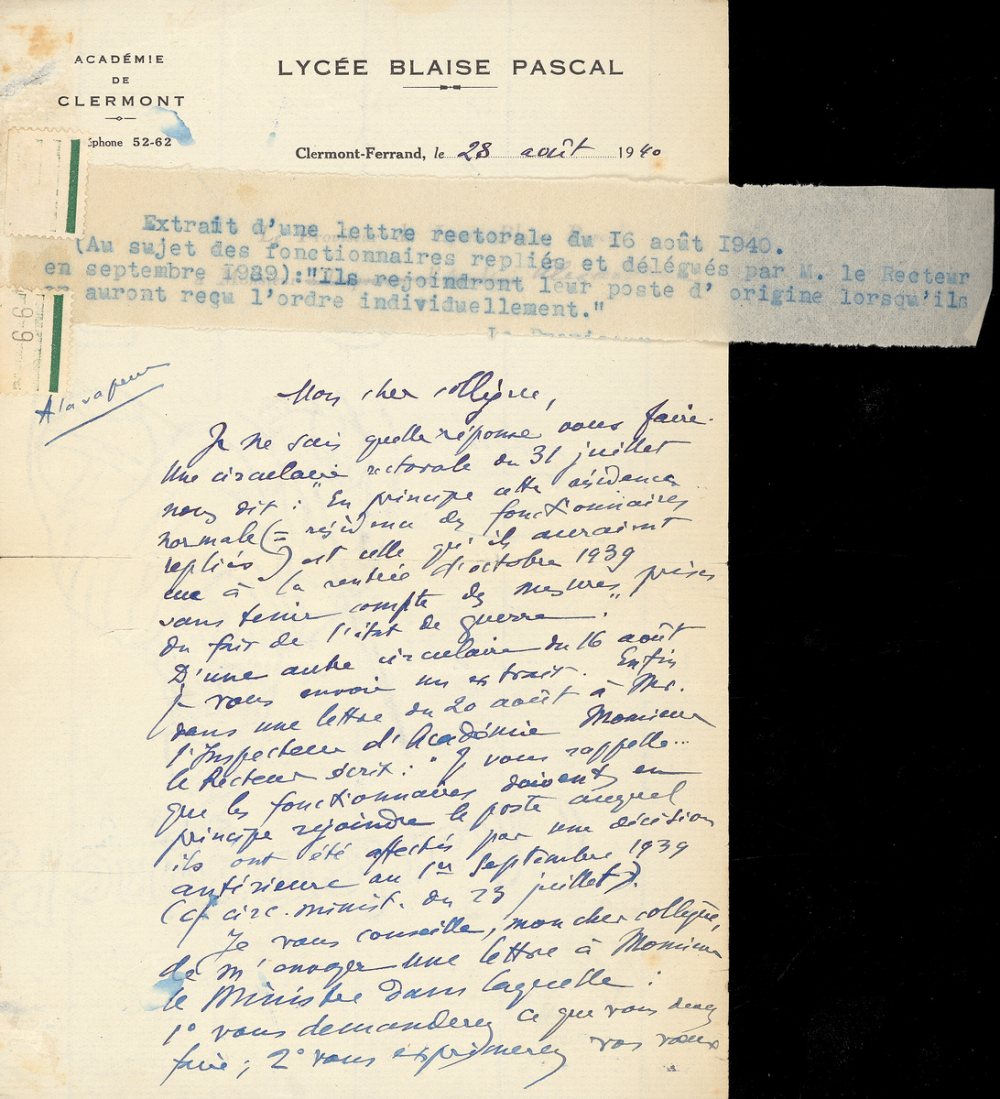 ACADÉMIE
DE
CLERMONT
éphone 52-62
LYCÉE BLAISE PASCAL
Clermont-Ferrand, le 28 août 1940
Extrait d'une lettre rectorale du I6 août I940.
(Au sujet des fonctionnaires repliés et délégués par M. le Recteur
en septembre I939):"Ils rejoindront leur poste d' origine lorsqu'ils
en auront reçu l'ordre individuellement."
6-6
A la vapeur
Mon cher collègue,
Je ne sais quelle réponse vous faire.
Une circulaire rectorale du 31 juillet
nous dit : "En principe cette résidence
normale (= résidence des fonctionnaires
repliés) est celle qu'ils auraient
eue à la rentrée d'octobre 1939
sans tenir compte des mesures prises
du fait de l'état de guerre".
D'une autre circulaire du 16 août
je vous envoie un extrait. Enfin
dans une lettre du 20 août à Mr.
l'Inspecteur d'Académie Monsieur
le Recteur écrit : "Je vous rappelle...
que les fonctionnaires doivent en
principe rejoindre le poste auquel
ils ont été affectés par une décision
antérieure au 1er Septembre 1939
(cf circ. minist. du 23 juillet).
Je vous conseille, mon cher collègue,
de m'envoyer une lettre à Monsieur
le Ministre dans laquelle :
1° vous demanderez ce que vous devez
faire ; 2° vous exprimerez vos vœux